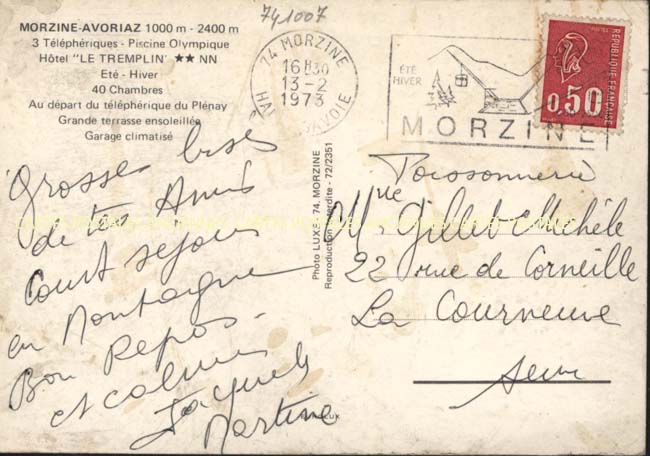 741007
MORZINE-AVORIAZ 1000 m - 2400 m
3 Téléphériques - Piscine Olympique
Hôtel "LE TREMPLIN" ★★ NN
Eté - Hiver
40 Chambres
Au départ du téléphérique du Plénay
Grande terrasse ensoleillée
Garage climatisé
74 MORZINE
16H30
13-2
1973
HTE SAVOIE
ÉTÉ
HIVER
MORZINE
REPUBLIQUE FRANÇAISE
0,50
Grosses bises
de tes Amis
Court séjour
en Montagne
Bon Repos
et calme
Jacques
Martine
Photo LUXE, 74. MORZINE
Reproduction interdite - 72/2351
Poissonnerie
Gillet Michèle
22 rue de Corneille
La Courneuve
Seine